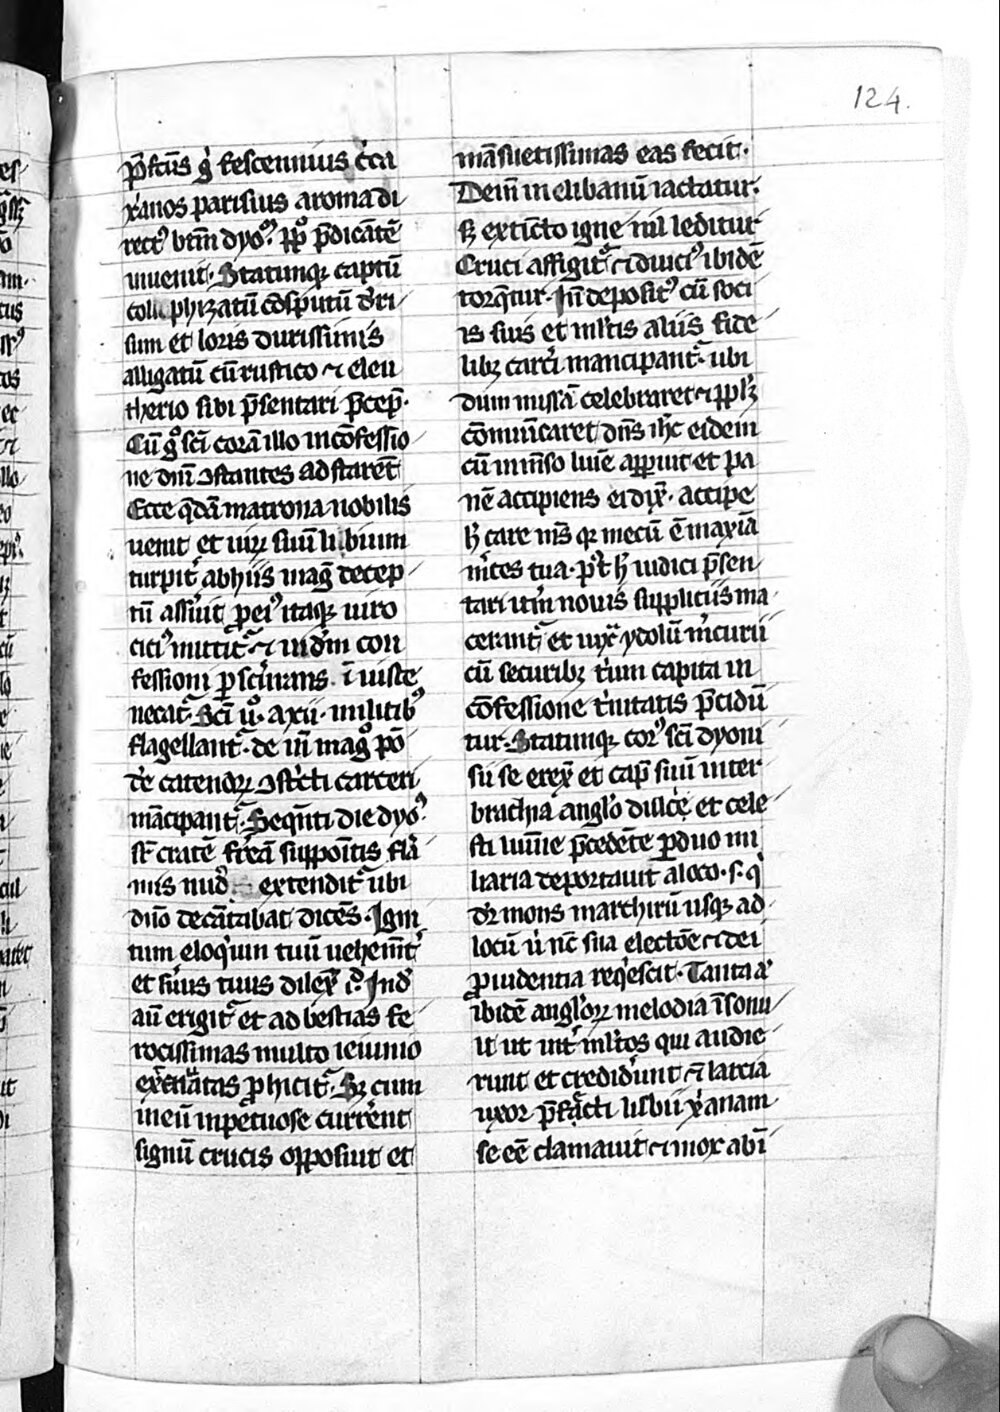 124.
p̄fctus gͥ fescennius c̄ca
xͥanos parisius a roma di
rect⁹ btm̄ dyo⁹. ppl̄o p̄dicātē
inuenit. Statimq; captū
colaphizatū cōsputū dͥri
sum et loris durissimis
alligatū cū rustico ⁊ eleu
therio sibi p̄sentari p̄cep̄.
Cū gͦ sc̄i corā illo in cōfessio
ne dn̄i ɔstantes ad starēt
Ecce q̄dā matrona nobilis
uenit et uirꝝ suū lisbium
turpit͛ ab hiis maḡ decep
tū asseruit ꝓ ei⁹ itaq; uiro
citi⁹ mittitᷣ ⁊ in dn̄i con
fessioni ꝑseuerans iniuste
necatᷣ. Sc̄i uͦ. a xii. militib⁹
flagellantᷣ. de in̄ magͦ pō
dͤre catenaꝝ ɔstͥcti carceri
mācipantᷣ. Seqn̄ti die dyo⁹.
sr̄ cratē ferreā suppoītis flā
mis nud⁹ extenditᷣ ubi
dn̄o decātabat dicēs. Igni
tum eloqͥum tuū uehemn̄t͛
et seruus tuus dilex̄ ⁊c̄. Ind̄
aū erigitᷣ et ad bestias fe
rocissimas multo ieiunio
exͣcitatas proicitᷣ. Sꝫ cum
in eū inpetuose currerent
signū crucis opposuit et
māsuetissimas eas fecit.
Dein̄ in clibanū iactatur.
sꝫ extīcto igne nil leditur
Cruci affigitᷣ ⁊ diuci⁹ ibidē
torq̄tur. In̄ deposit⁹ cū soci
is suis et ml̄tis aliis fide
libꝫ carcͥi mancipantᷣ ubi
dum missā celebraret ⁊ ppl̄ꝫ
cōmunicaret dn̄s ih̄c eidem
cū inmēso lumīe apparuit et pa
nē accipiens ei dix̄. accipe
h̄ care ms̄ qꝛ mecū ē maxīa
m̄ces tua. pͦt h̄ iudici p̄sen
tari itm̄ nouis suppliciis ma
cerantᷣ et iuxͣ ydolū m̄curii
cū securibꝫ t̄um capita in
cōfessione tͥnitatis p̄cidū
tur. Statimq; cor⁹ sc̄i dyoni
sii se erex̄ et cap̄ suū inter
brachia anglͦo duc̄e et cele
sti lumīe p̄cedēte ꝑ duo mi
liaria deportauit a loco. s. qͥ
dr̄ mons martirū usq; ad
locū ī nc̄ sua electōe ⁊ dei
ꝓuidentia req̄escit. Tanta aͫ
ibidē angloꝝ melodia īsonu
it ut int͛ ml̄tos qui audie
runt et credideͬunt ⁊ lacia
uxor p̄fāti lisbii xͥanam
se eē clamauit ⁊ mox ab ī